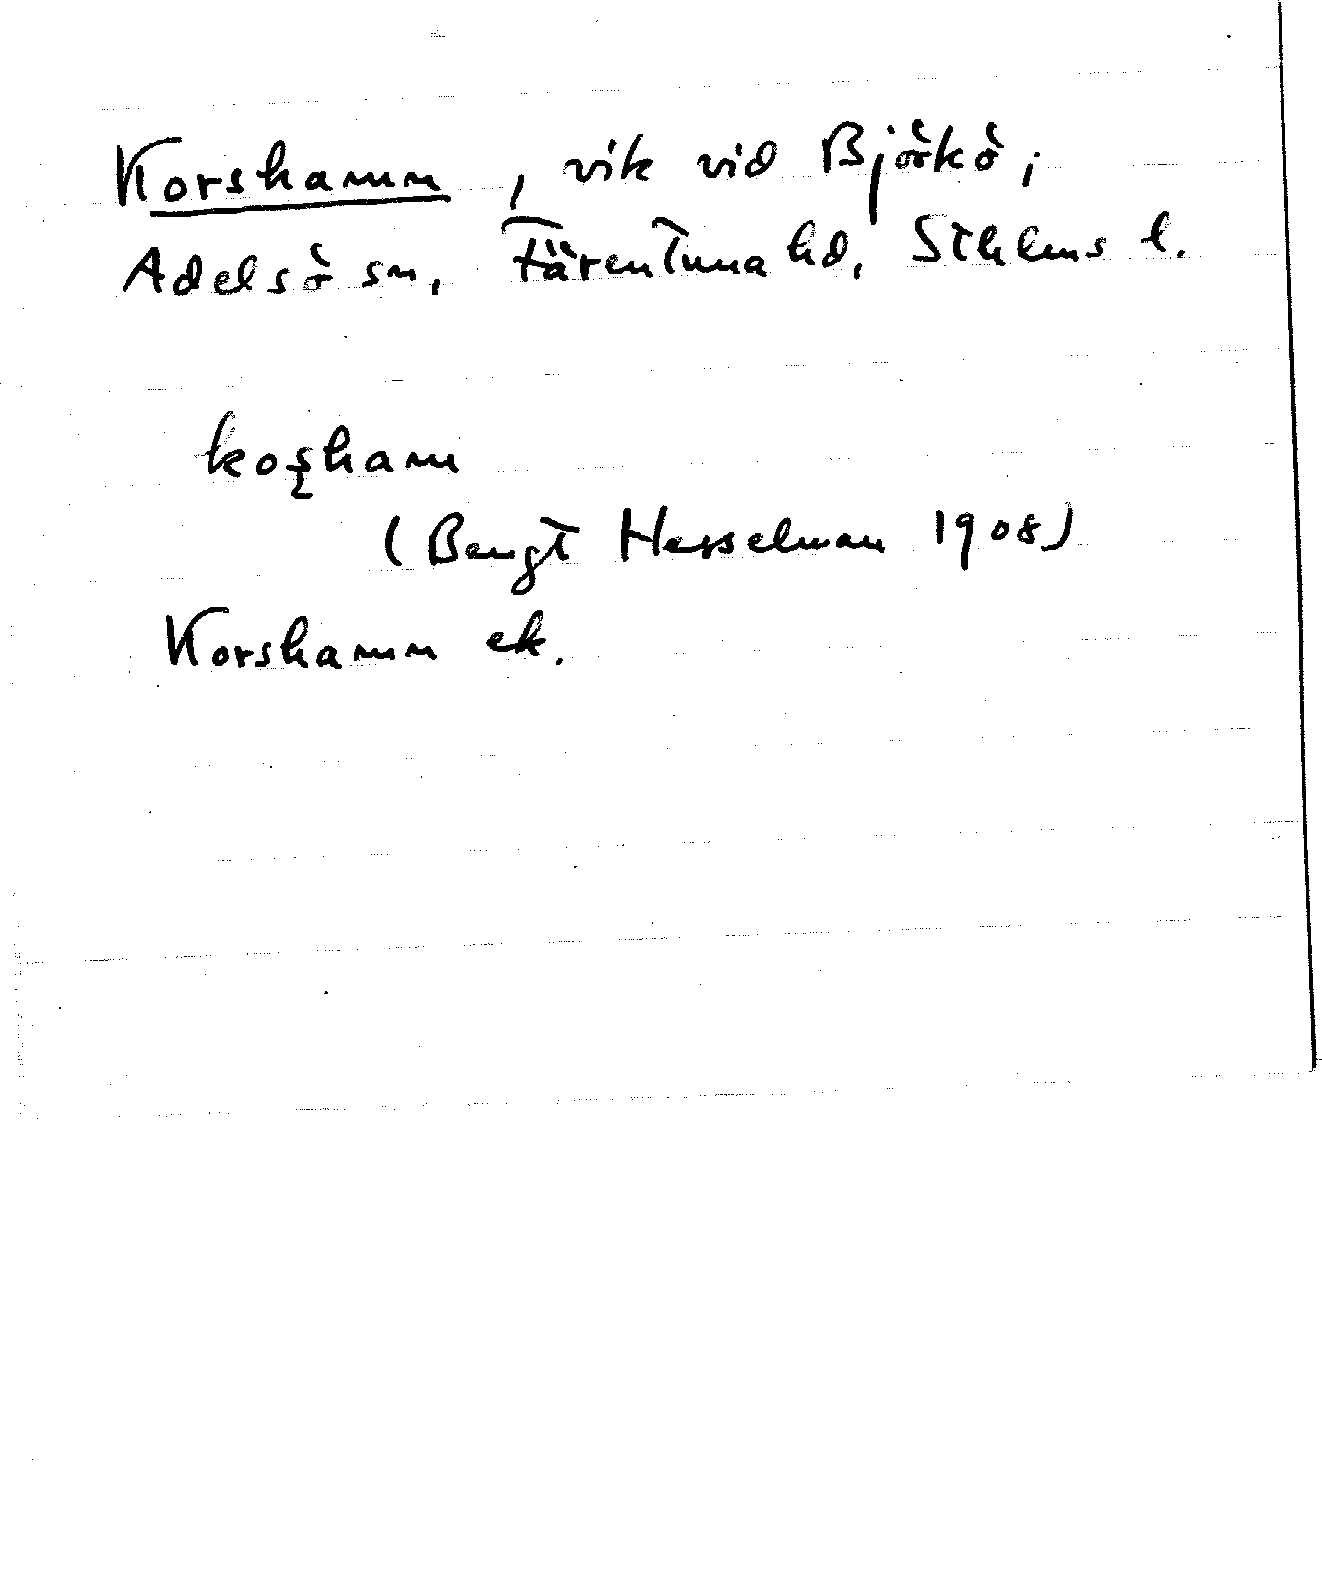 Korshamn, vik vid Björkö i
Adelsö sn, Färentuna hd, Sthlms l.
koʂham
(Bengt Hesselman 1908)
Korshamn ek.